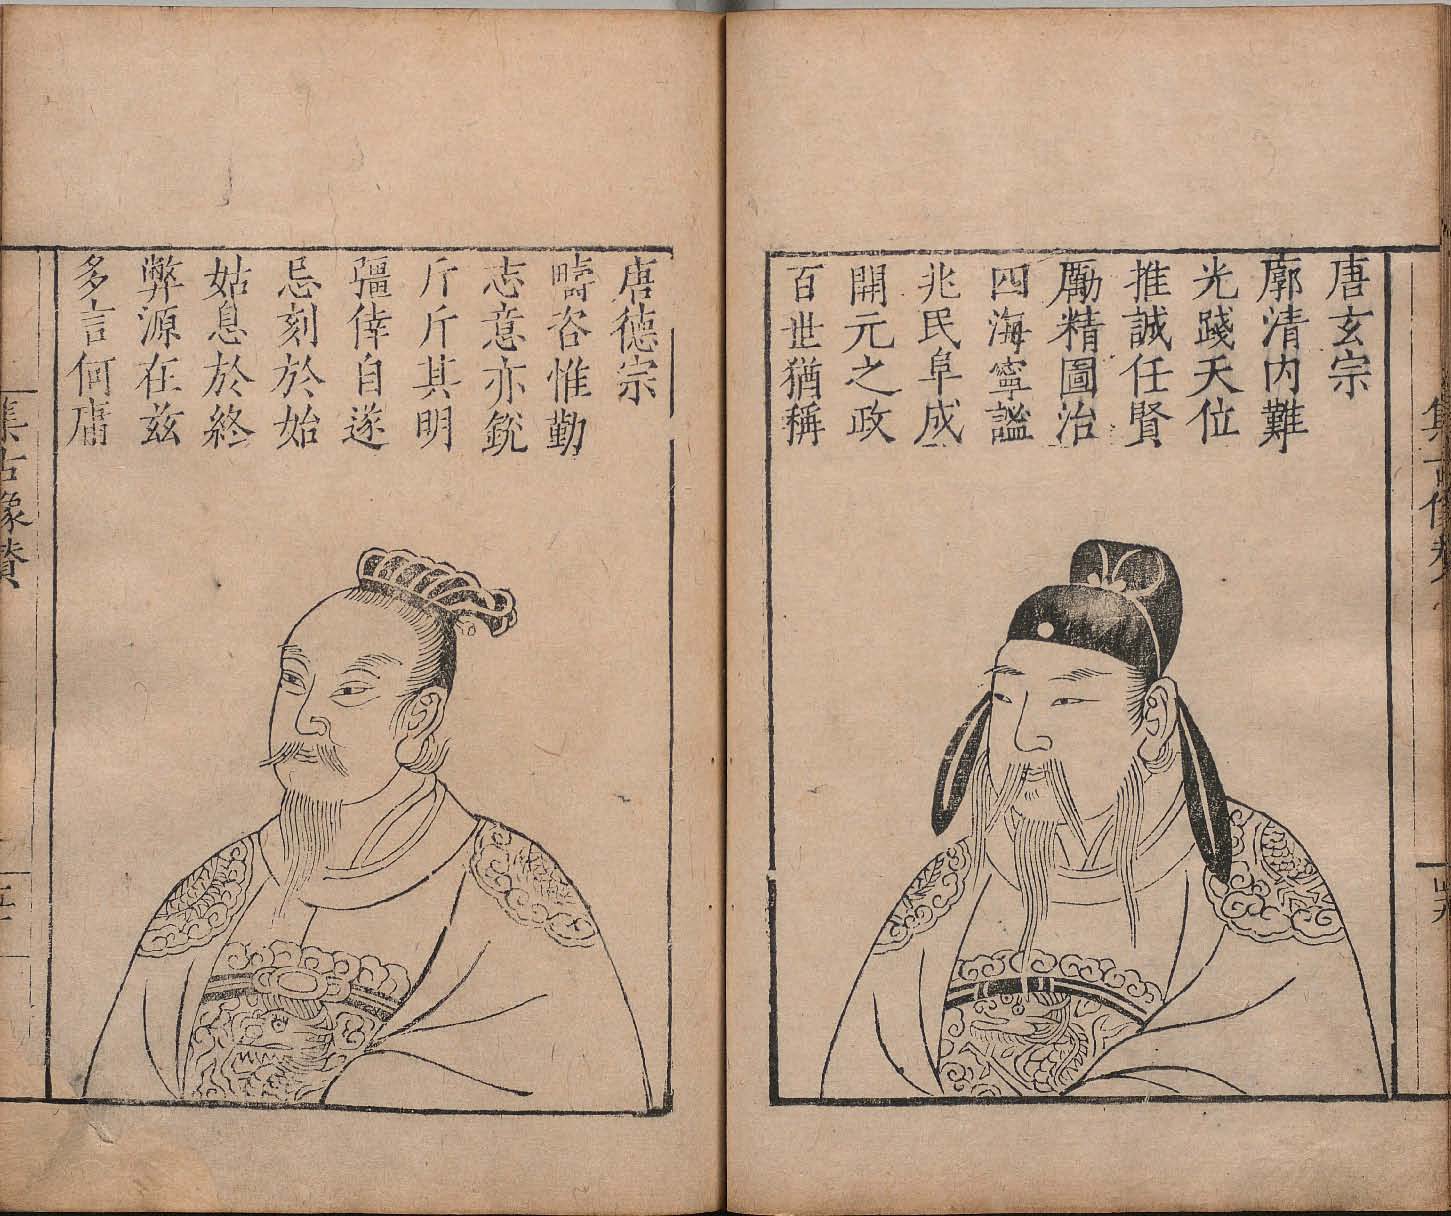 唐玄宗
廓清内難
光踐天位
推誠任賢
勵精圖治
四海寧謐
兆民阜成
開元之政
百世猶稱
唐德宗
疇咨惟勤
志意亦銳
斤斤其明
彊倖自遂
忌刻於始
姑息於終
弊源在茲
多言何庸
集古像贊